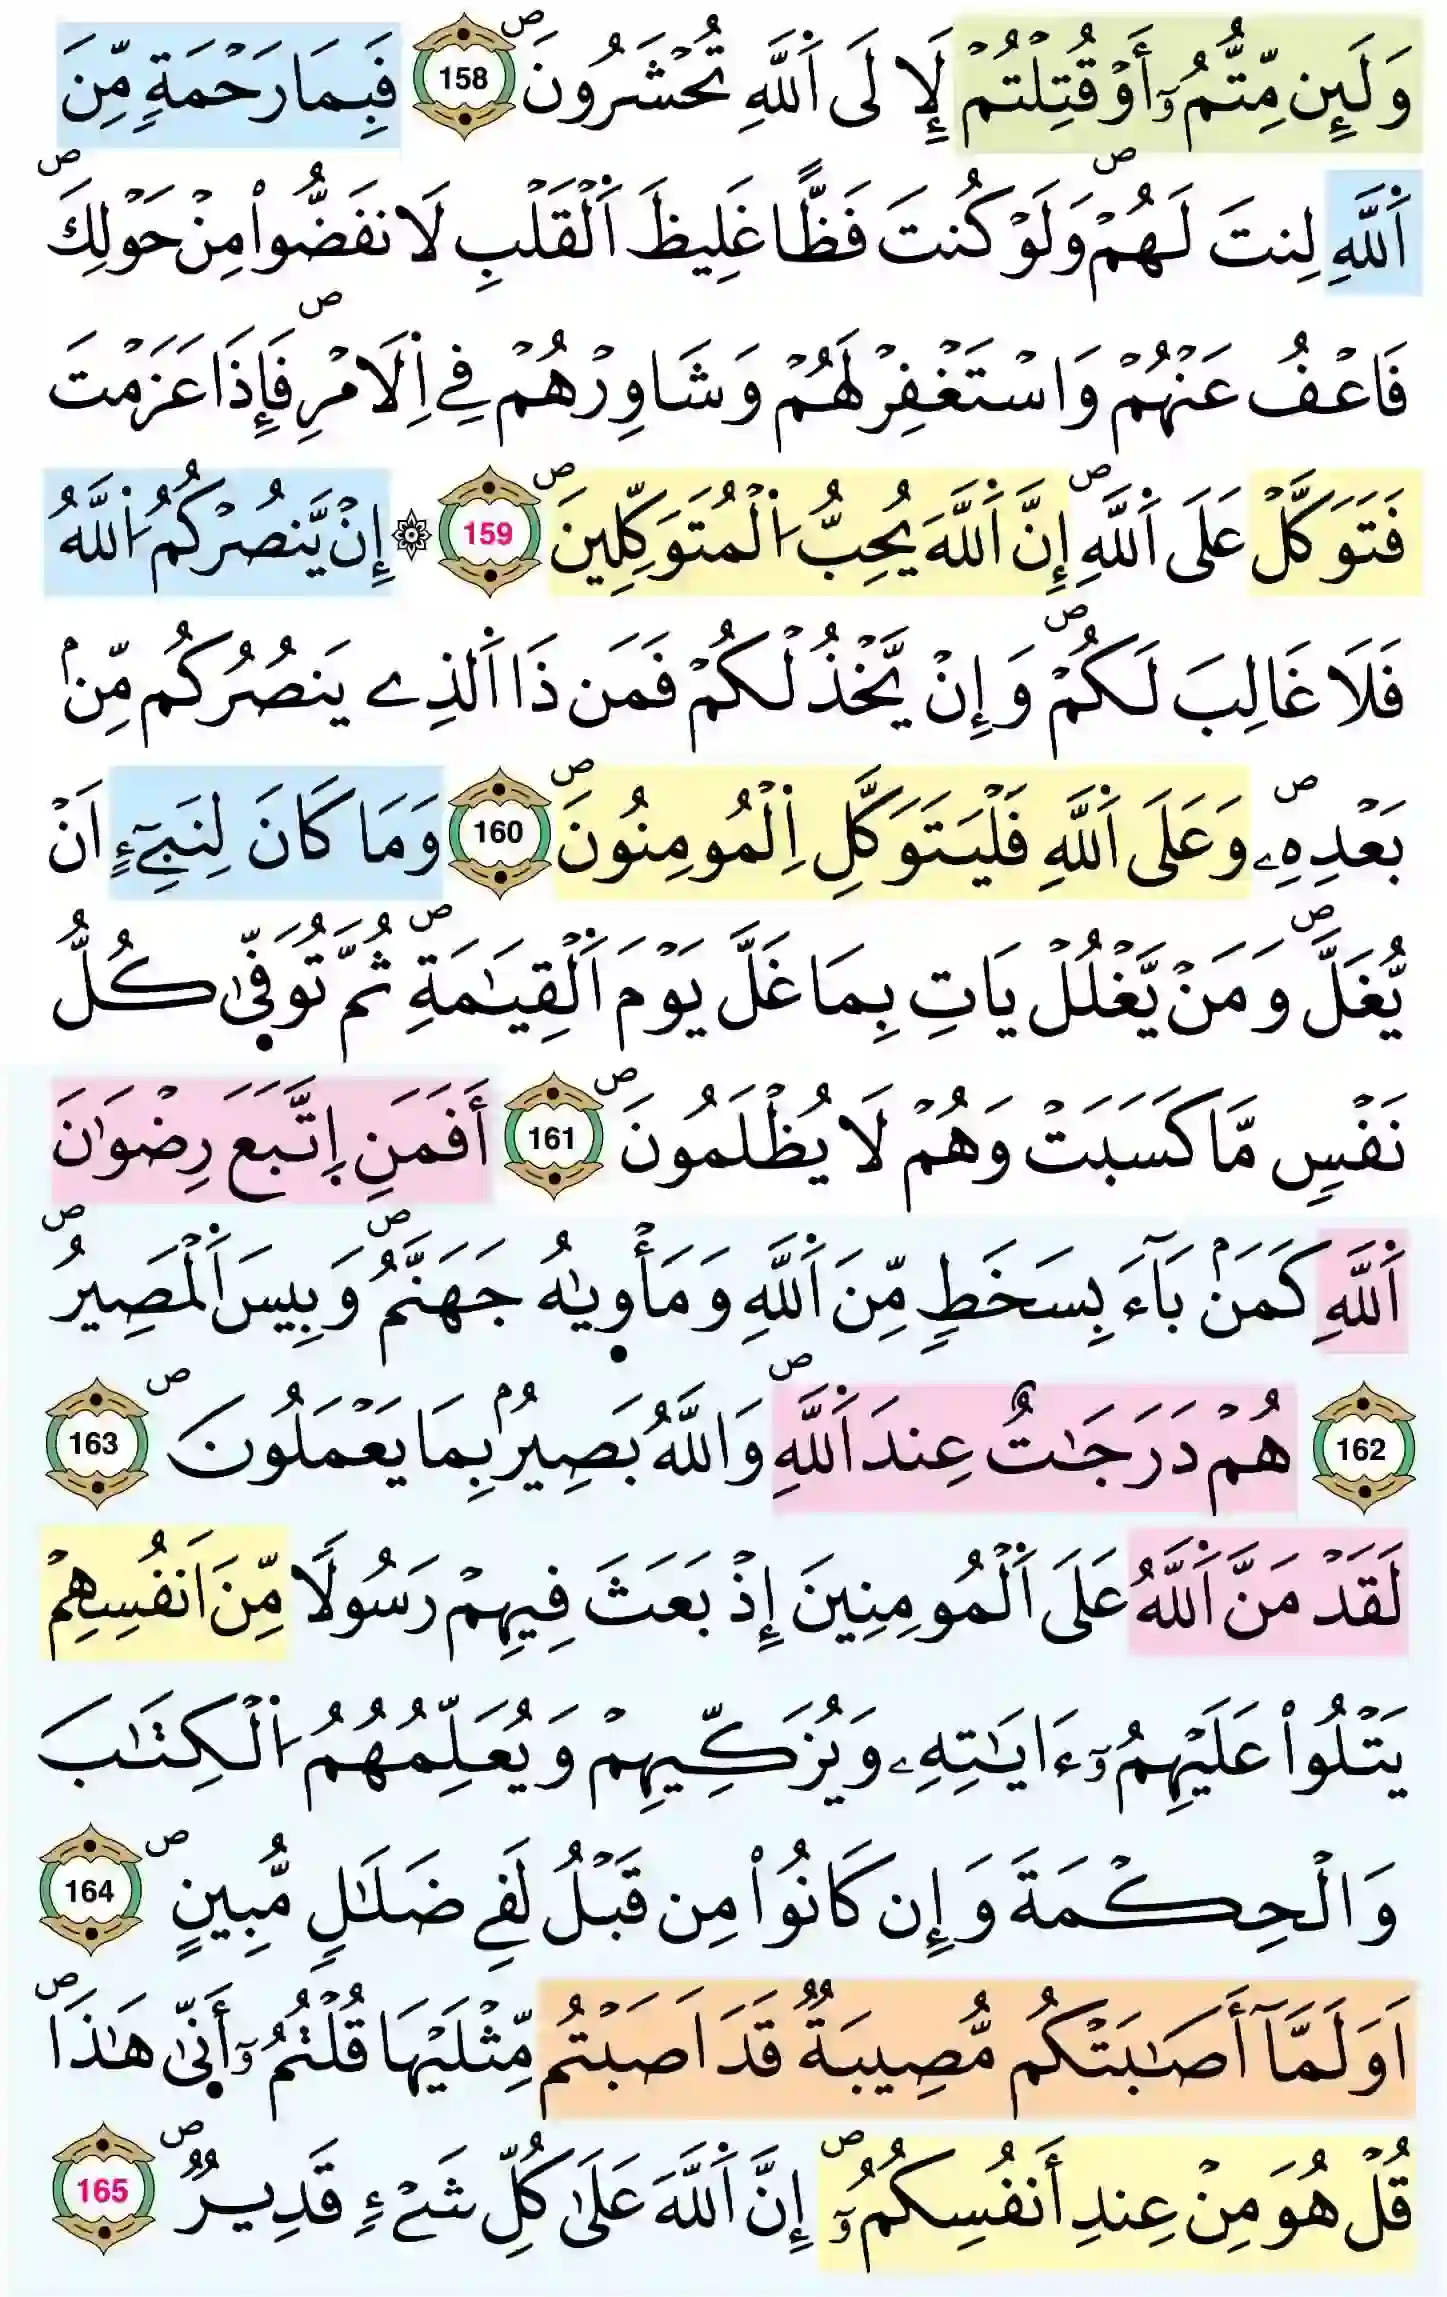 وَلَئِن مِّتُّمُۥٓ أَوْ قُتِلْتُمْ لَإِلَى اَ۬للَّهِ تُحْشَرُونَۖ 158 فَبِمَا رَحْمَةٖ مِّنَ
اَ۬للَّهِ لِنتَ لَهُمْۖ وَلَوْ كُنتَ فَظّاً غَلِيظَ اَ۬لْقَلْبِ لَانفَضُّواْ مِنْ حَوْلِكَۖ
فَاعْفُ عَنْهُمْ وَاسْتَغْفِرْ لَهُمْ وَشَاوِرْهُمْ فِے اِ۬لَامْرِۖ فَإِذَا عَزَمْتَ
فَتَوَكَّلْ عَلَى اَ۬للَّهِۖ إِنَّ اَ۬للَّهَ يُحِبُّ اُ۬لْمُتَوَكِّلِينَۖ 159 ۞ إِنْ يَّنصُرْكُمُ اُ۬للَّهُ
فَلَا غَالِبَ لَكُمْۖ وَإِنْ يَّخْذُلْكُمْ فَمَن ذَا اَ۬لذِے يَنصُرُكُم مِّنۢ
بَعْدِهِۦۖ وَعَلَى اَ۬للَّهِ فَلْيَتَوَكَّلِ اِ۬لْمُومِنُونَۖ 160 وَمَا كَانَ لِنَبِےٓءٍ اَنْ
يُّغَلَّۖ وَمَنْ يَّغْلُلْ يَاتِ بِمَا غَلَّ يَوْمَ اَ۬لْقِيَٰمَةِۖ ثُمَّ تُوَفّ۪ىٰ كُلُّ
نَفْسٖ مَّا كَسَبَتْ وَهُمْ لَا يُظْلَمُونَۖ 161 أَفَمَنِ اِ۪تَّبَعَ رِضْوَٰنَ
اَ۬للَّهِ كَمَنۢ بَآءَ بِسَخَطٖ مِّنَ اَ۬للَّهِ وَمَأْو۪يٰهُ جَهَنَّمُۖ وَبِيسَ اَ۬لْمَصِيرُۖ
162 هُمْ دَرَجَٰتٌ عِندَ اَ۬للَّهِۖ وَاللَّهُ بَصِيرُۢ بِمَا يَعْمَلُونَۖ 163
لَقَدْ مَنَّ اَ۬للَّهُ عَلَى اَ۬لْمُومِنِينَ إِذْ بَعَثَ فِيهِمْ رَسُولاٗ مِّنَ اَنفُسِهِمْ
يَتْلُواْ عَلَيْهِمُۥٓ ءَايَٰتِهِۦ وَيُزَكِّيهِمْ وَيُعَلِّمُهُمُ اُ۬لْكِتَٰبَ
وَالْحِكْمَةَ وَإِن كَانُواْ مِن قَبْلُ لَفِے ضَلَٰلٖ مُّبِينٍۖ 164
اَوَلَمَّآ أَصَٰبَتْكُم مُّصِيبَةٞ قَدَ اَصَبْتُم مِّثْلَيْهَا قُلْتُمُۥٓ أَنّ۪ىٰ هَٰذَاۖ
قُلْ هُوَ مِنْ عِندِ أَنفُسِكُمُۥٓۖ إِنَّ اَ۬للَّهَ عَلَىٰ كُلِّ شَےْءٖ قَدِيرٞۖ 165